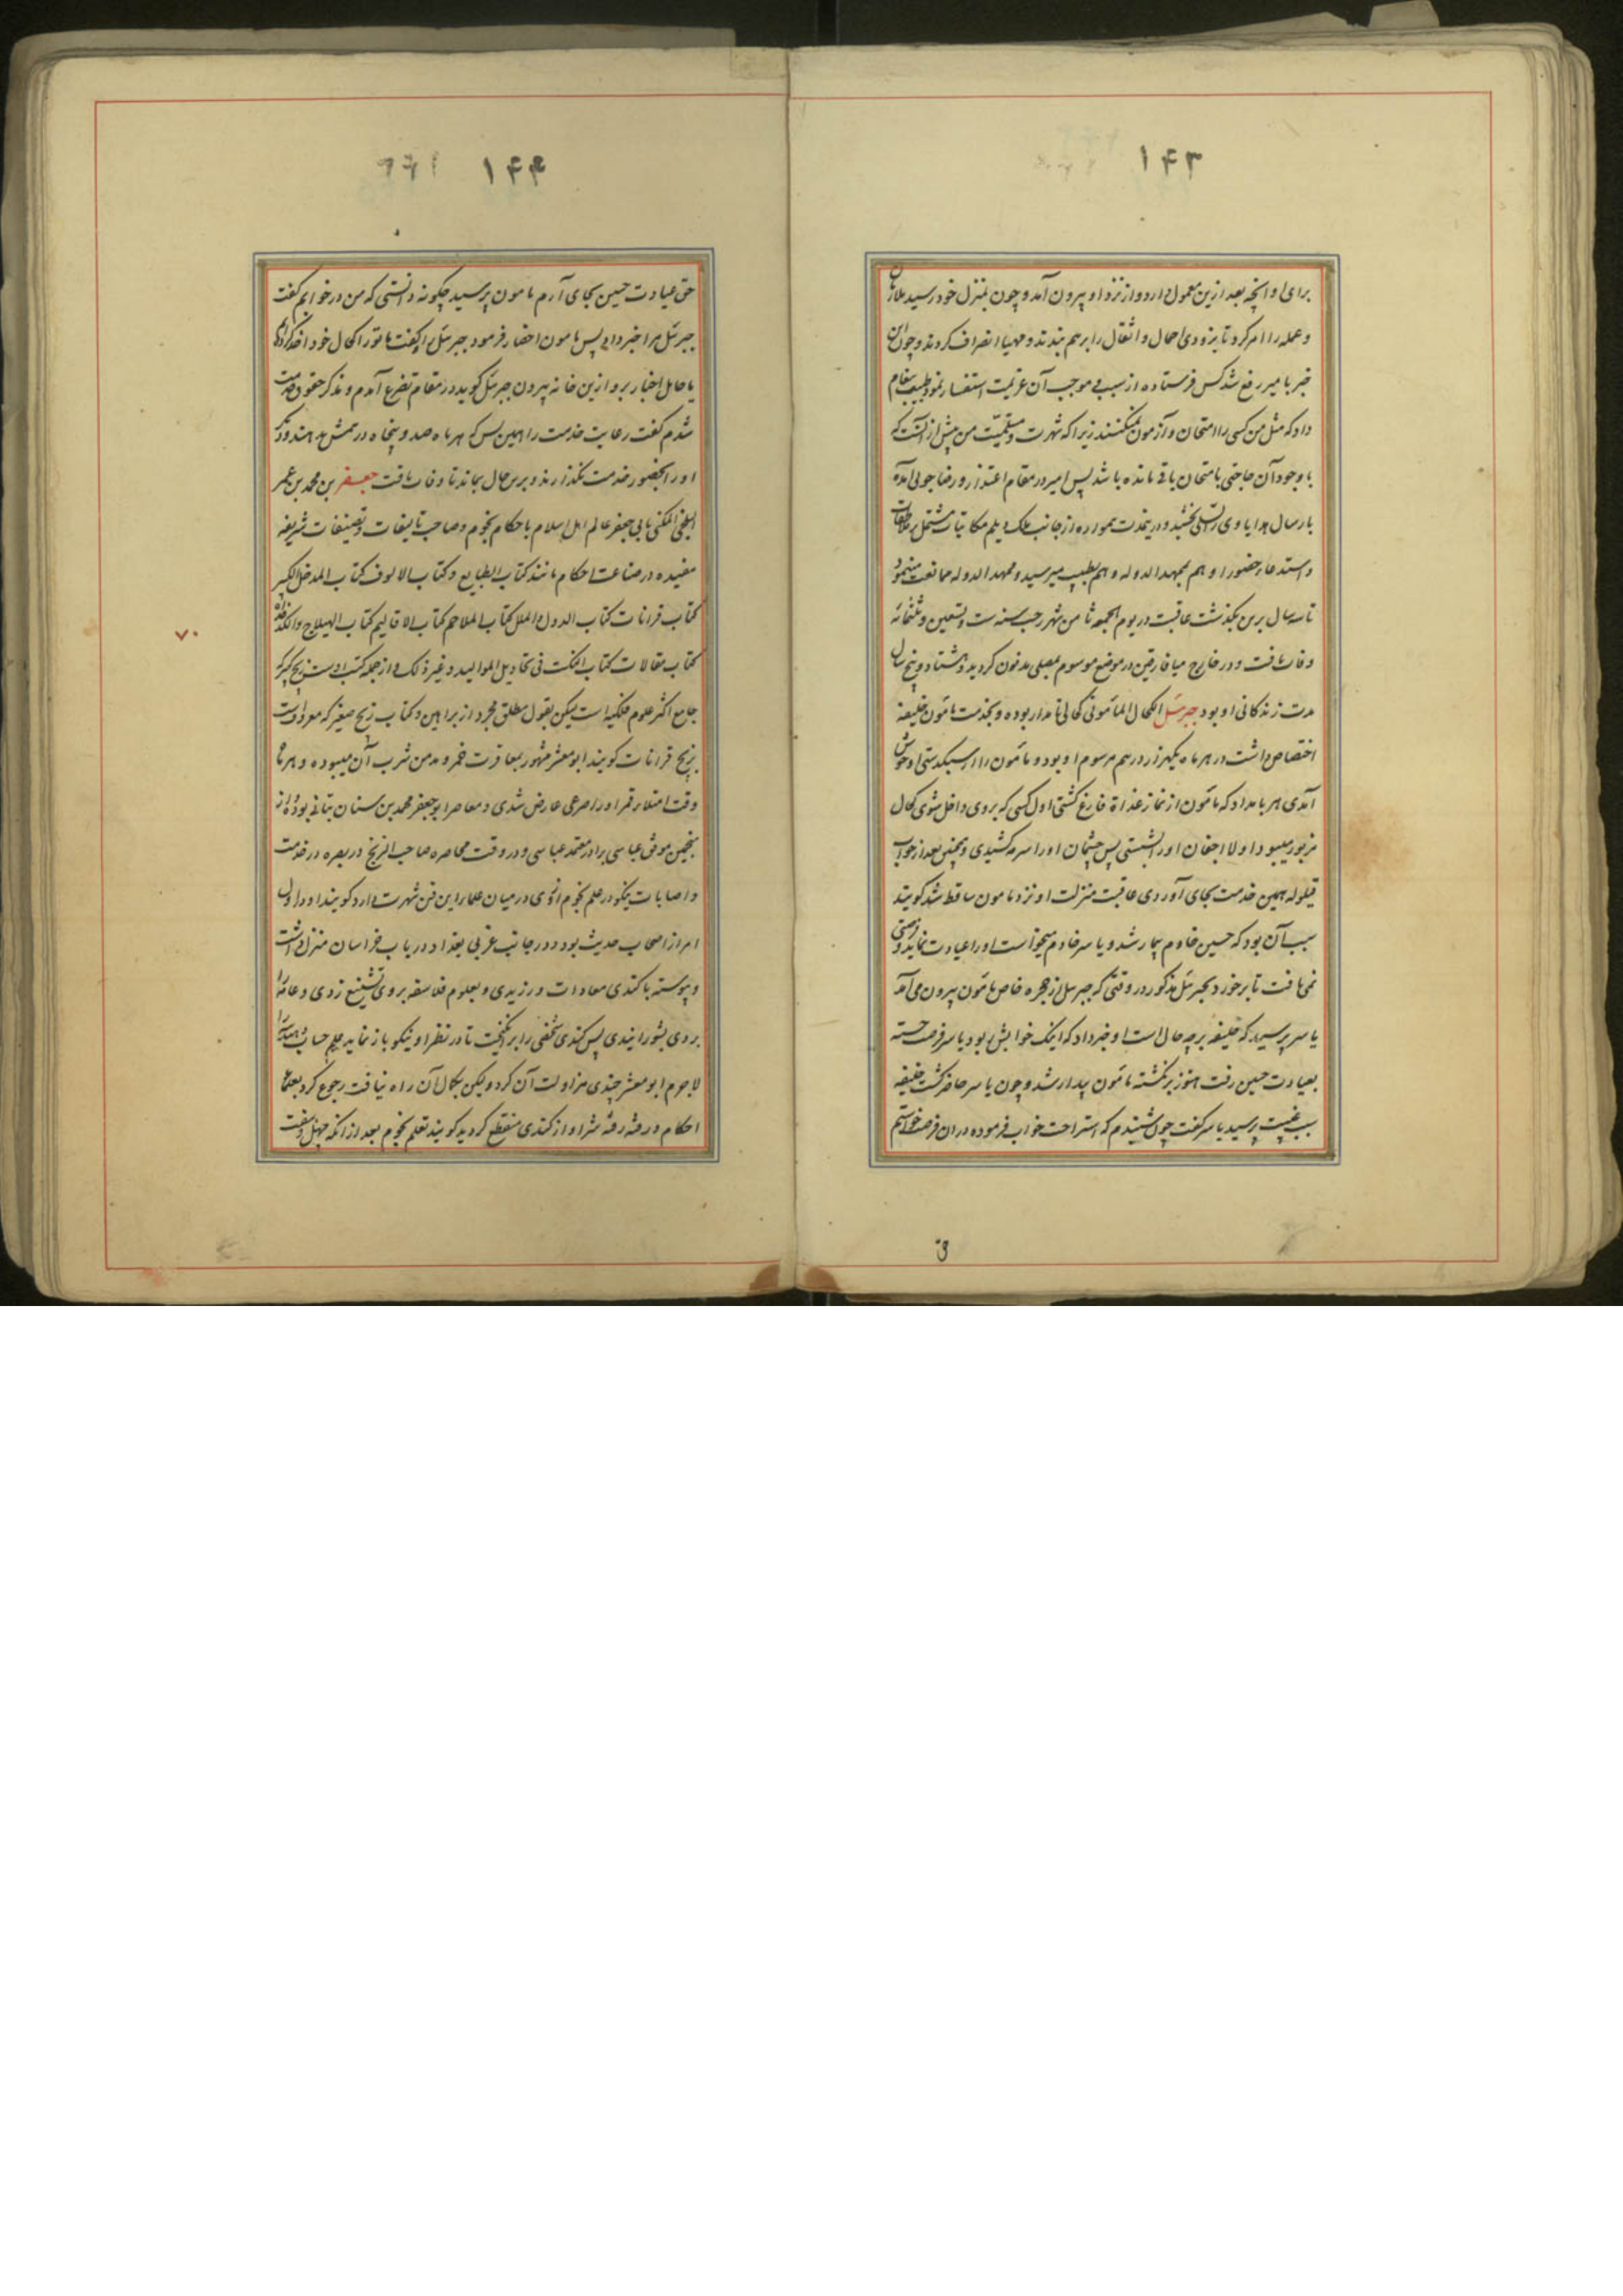 ۱۴۳
برای او آنچه بعد ازین معمول دارد و از نزد او بیرون آمد و چون بمنزل خود رسید ملازمان
و عمله را امر کرد تا بزودی احمال و اثقال را بر هم بندند و مهیا انصراف کردند و چون این
خبر بامیر رفع شد کس فرستاده از سبب و موجب آن عزیمت استفسار نمود طبیب پیغام
داد که مثل من کسی را امتحان و آزمون نمیکنند زیرا که شهرت و من پیش از آنست که
با وجود آن حاجتی بامتحان باقی مانده باشد پس امیر در مقام اعتذار و رضاجوئی آمده
بارسال هدایا وی را تسلی بخشید و درینمدت همواره از جانب ملک دیلم مکاتبات مشتمل بر ملاطفات
و استدعاء حضور او هم بممهد الدوله و هم بطبیب میرسید و ممهد الدوله ممانعت مینمود
تا سه سال برین بگذشت عاقبت در یوم الجمعه ثامن شهر رجب سنه ست و تسعین و ثلثمائه
وفات یافت و در خارج میافارقین در موضع موسوم بمصلی مدفون گردید و هشتاد و پنج سال
مدت زندگانی او بود جبرئیل الکحال المأمونی کحالی نامدار بوده و بخدمت مأمون خلیفه
اختصاص داشت در هر ماه یکهزار درهم مرسوم او بود و مأمون را از سبکدستی او خوش
آمدی هر بامداد که مأمون از نماز غداة فارغ گشتی اول کسی که بر وی داخل شوی کحال
مزبور میبود اولا اجفان او را بشستی پس چشمان او را سرمه کشیدی و همچنین بعد از خواب
قیلوله همین خدمت بجای آوردی عاقبت منزلت او نزد مامون ساقط شد گویند
سبب آن بود که حسین خادم بیمار شد و یاسر خادم میخواست او را عیادت نماید و فرصتی
نمی یافت تا برخورد بجبرئیل مذکور در وقتی که جبرئیل از حجره خاص مأمون بیرون می آمد
یاسر پرسید که خلیفه بر چه حال است او خبر داد که اینک خوابش بود یاسر فرصت جسته
بعیادت حسین رفت هنوز برنگشته مأمون بیدار شد و چون یاسر حاضر گشت خلیفه
سبب غیبت پرسید یاسر گفت چون شنیدم که استراحت خواب فرموده در آن فرصت خواستم
ق
۱۴۴
حق عیادت حسین بجای آرم مامون پرسید چگونه دانستی که من در خوابم گفت
جبرئیل مرا خبر داد پس مامون احضار فرمود جبرئیل را گفت ما تو را کحال خود اخذ کرده ایم
یا حامل اخبار برو ازین خانه بیرون جبرئیل گوید در مقام تضرع آمدم و متذکر حقوق خدمت
شدم گفت رعایت خدمت را همین بس که هر ماه صد و پنجاه درمش بدهند و دیگر
او را بحضور خدمت نگذارند و برین حال بماند تا وفات یافت جعفر بن محمد بن عمر
البلخی المکنی بابی جعفر عالم اهل اسلام باحکام نجوم و صاحب تالیفات و تصنیفات شریفه
مفیده در صناعت احکام مانند کتاب الطبایع و کتاب الالوف کتاب المدخل الکبیر
کتاب قرانات کتاب الدول و الملل کتاب الملاحم کتاب الاقالیم کتاب الهیلاج و الکدخداه
کتاب مقالات کتاب النکت فی تحاویل الموالید و غیر ذلک و از جمله کتب اوست زیج کبیر که
جامع اکثر علوم فلکیه است لیکن بقول مطلق مجرد از براهین و کتاب زیج صغیر که معروفست
بزیج قرانات گویند ابو معشر مشهور بمعاقرت خمر و مدمن شرب آن میبوده و هر ماه
وقت امتلاء قمر او را صرعی عارض شدی و معاصر ابو جعفر محمد بن سنان بتانی بوده و از
منجمین موفق عباسی برادر معتمد عباسی و در وقت محاصره صاحب الزنج در بصره در خدمت
و اصابات نیکو در علم نجوم از وی در میان علماء این فن شهرت دارد گویند او در اول
امر از اصحاب حدیث بود و در جانب غربی بغداد در باب خراسان منزل داشت
و پیوسته با کندی معادات ورزیدی و بعلوم فلاسفه بر وی تشنیع زدی و عامه را
بر وی بشورانیدی پس کندی شخصی را برانگیخت تا در نظر او نیکو باز نماید علم حساب و هندسه را
لاجرم ابو معشر چندی مزاولت آن کرد و لیکن بکمال آن راه نیافت رجوع کرد بعلم
احکام و رفته رفته شر او از کندی منقطع گردید گویند تعلم نجوم بعد از آنکه چهل و هفت
۷۰